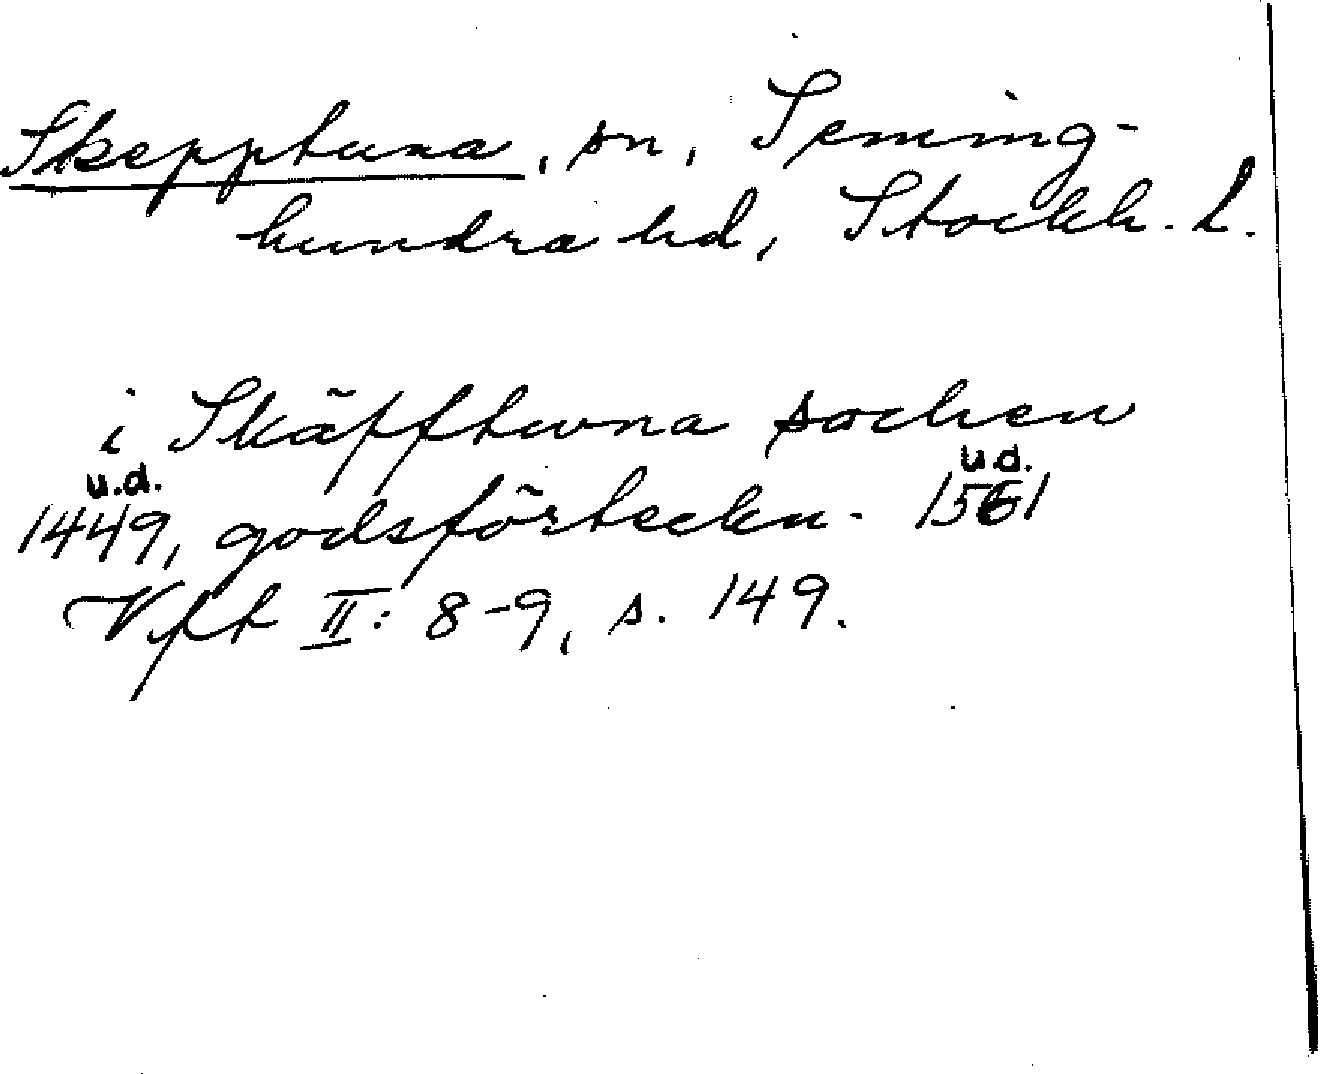 Skepptuna, sn, Seming-
hundra hd, Stockh. l.
i Skäpftwna sochen
u.d. u.d.
1449, godsförteckn. 1561
Vft II: 8-9, s. 149.